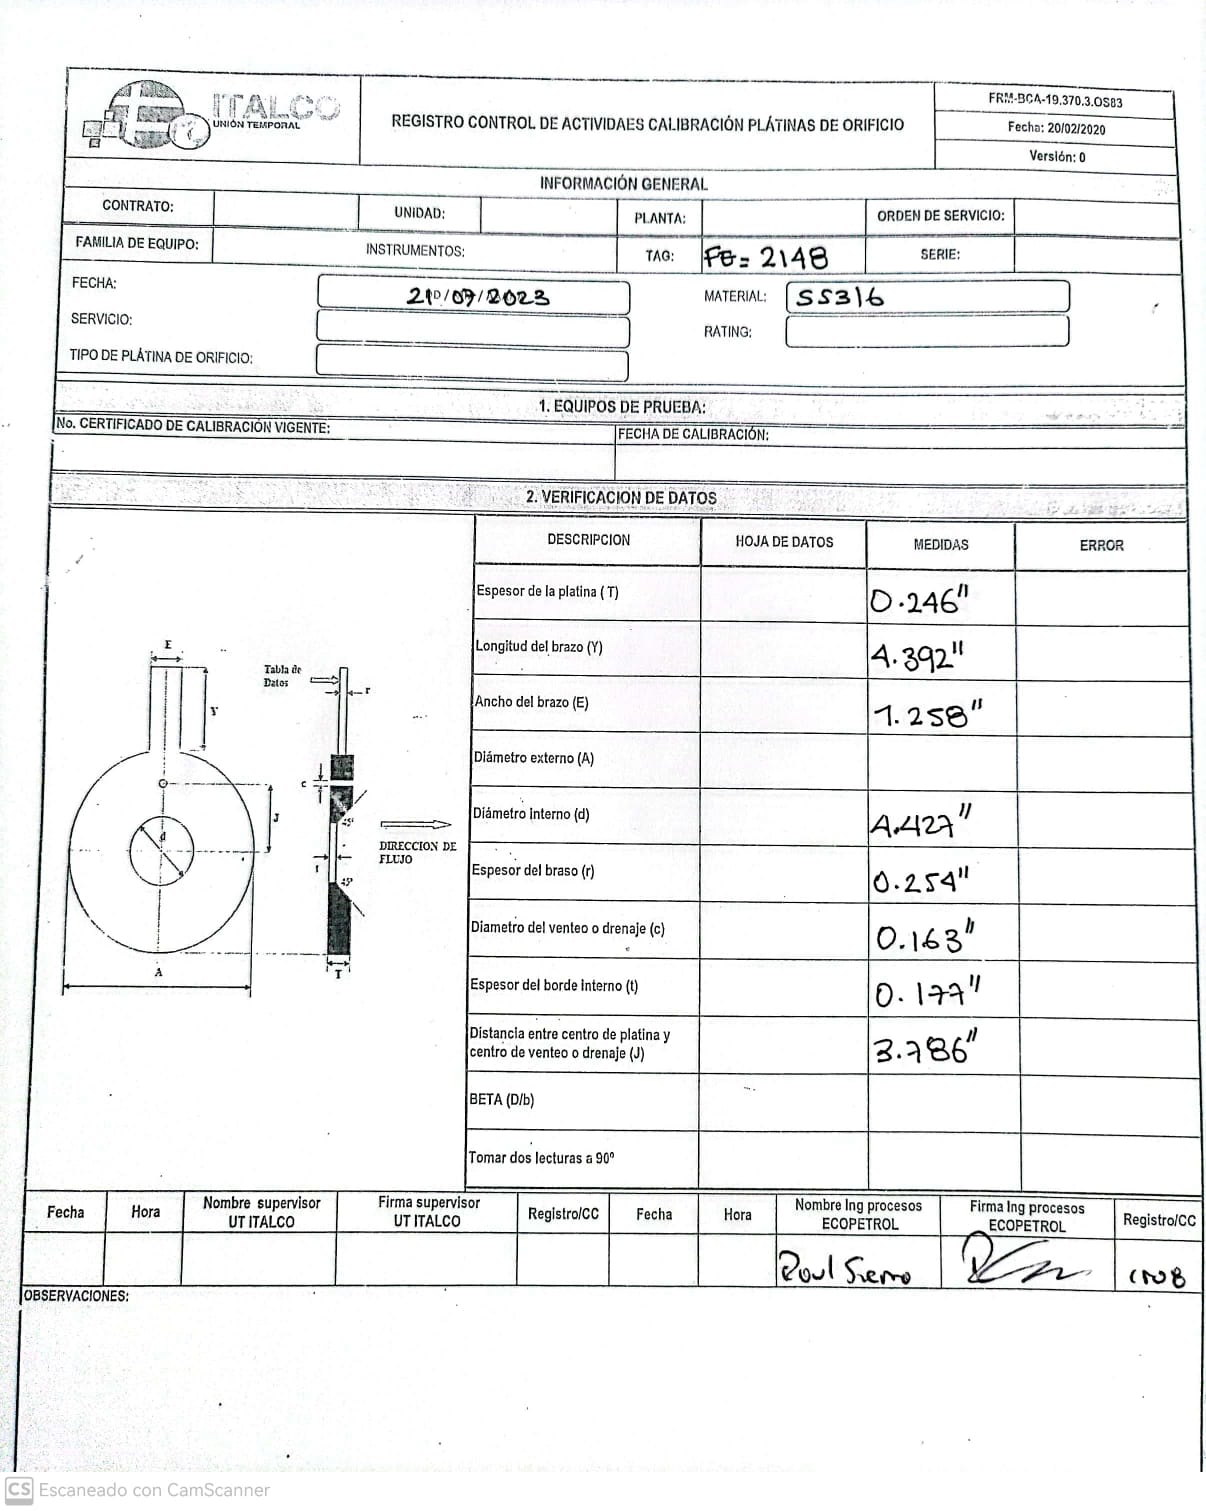 ITALCO
UNIÓN TEMPORAL
REGISTRO CONTROL DE ACTIVIDAES CALIBRACIÓN PLÁTINAS DE ORIFICIO
FRM-BCA-19.370.3.OS83
Fecha: 20/02/2020
Versión: 0
INFORMACIÓN GENERAL
CONTRATO: UNIDAD: PLANTA: ORDEN DE SERVICIO:
FAMILIA DE EQUIPO: INSTRUMENTOS: TAG: FE= 2148 SERIE:
FECHA: /2023 MATERIAL: SS316
SERVICIO: RATING:
TIPO DE PLÁTINA DE ORIFICIO:
1. EQUIPOS DE PRUEBA:
No. CERTIFICADO DE CALIBRACIÓN VIGENTE: FECHA DE CALIBRACIÓN:
2. VERIFICACION DE DATOS
DESCRIPCION HOJA DE DATOS MEDIDAS ERROR
Espesor de la platina ( T) 0.246"
Longitud del brazo (Y) 4.392"
Ancho del brazo (E) 1.258"
Diámetro externo (A)
Diámetro interno (d) 4.427"
Espesor del braso (r) 0.254"
Diametro del venteo o drenaje (c) 0.163"
Espesor del borde interno (t) 0.177"
Distancia entre centro de platina y
centro de venteo o drenaje (J) 3.786"
BETA (D/b)
Tomar dos lecturas a 90º
E
Y
J
d
A
Tabla de
Datos
r
c
45º
t
45º
T
DIRECCION DE
FLUJO
Fecha Hora Nombre supervisor
UT ITALCO Firma supervisor
UT ITALCO Registro/CC Fecha Hora Nombre Ing procesos
ECOPETROL Firma Ing procesos
ECOPETROL Registro/CC
Raul Sierra
OBSERVACIONES:
CS Escaneado con CamScanner